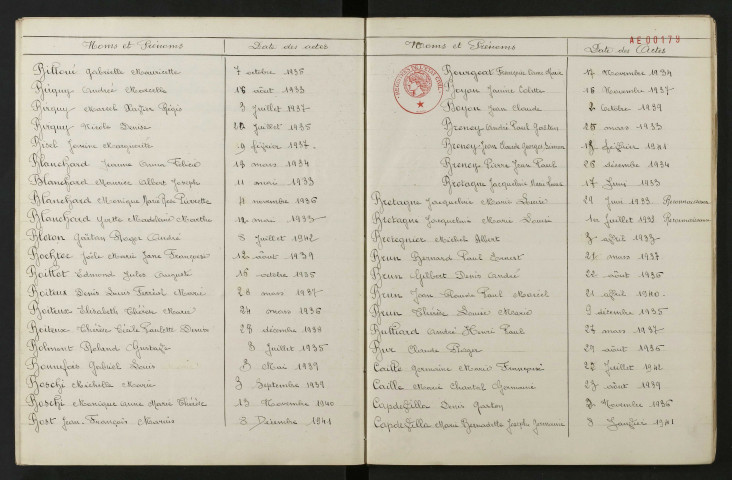 Noms et Prénoms Date des actes
Gabrielle Mauricette 7 octobre 1935
Birguy Andrée Marcelle 16 août 1933
Birguy Marcel Régis 3 Juillet 1937
Birguy Nicole Denise Juillet 1935
Bisel Janine Marguerite 9 février 1937
Blanchard Jeanne 1934
Blanchard Maurice Albert Joseph 11 mai 1933
Blanchard Monique Marie Jean Pierrette 11 novembre 1936
Blanchard Yvette Madeleine Marthe 12 mai 1933
Gaëtan Roger André 8 Juillet 1942
Marie Jane Françoise 12 août 1939
Boillot Edmond Jules Auguste 16 octobre 1935
Boiteux Denis Marie 28 mars 1937
Boiteux Elisabeth Thérèse Marie 24 mars 1936
Boiteux Thérèse Cécile Paulette Denise 28 décembre 1938
Bolmont Roland Gustave 8 Juillet 1935
Bonnefoy Gabriel Louis 3 Mai 1939
Boschi Michelle Marie 3 Septembre 1939
Boschi Monique Anne Marie Thérèse 13 Novembre 1940
Bost Jean-François Maurice 8 Décembre 1941
AE00179
Noms et Prénoms Date des Actes
Bourgeat François Marie 17 Novembre 1934
Boyon Janine Colette 16 Novembre 1937
Boyon Jean Claude 2 Octobre 1939
Breney André Paul Gaston 25 mars 1933
Breney Jean Claude Georges 18 février 1941
Breney Pierre Jean Paul 26 décembre 1934
Bretagne Jacqueline Marie Louise 17 Juin 1933
Bretagne Jacqueline Marie Louise 29 Juin 1933 Reconnaissance
Bretagne Jacqueline Marie Louise 1er Juillet Reconnaissance
Michel Albert 3 avril 1937
Brun Bernard Paul Ernest 21 mars 1937
Brun Gilbert Denis André 22 août 1936
Brun Jean Claude Paul Marcel 21 avril 1940
Brun Thérèse Louise Marie 9 décembre 1935
Bulliard André Henri Paul 27 mars 1937
Bur Claude Roger 29 août 1936
Caille Germaine Marie Françoise 22 Juillet 1942
Caille Marie Chantal Germaine 27 août 1939
Capdefille Denis Gaston 2 Novembre 1936
Capdefille Marie Bernadette Josèphe Germaine 3 Janvier 1941